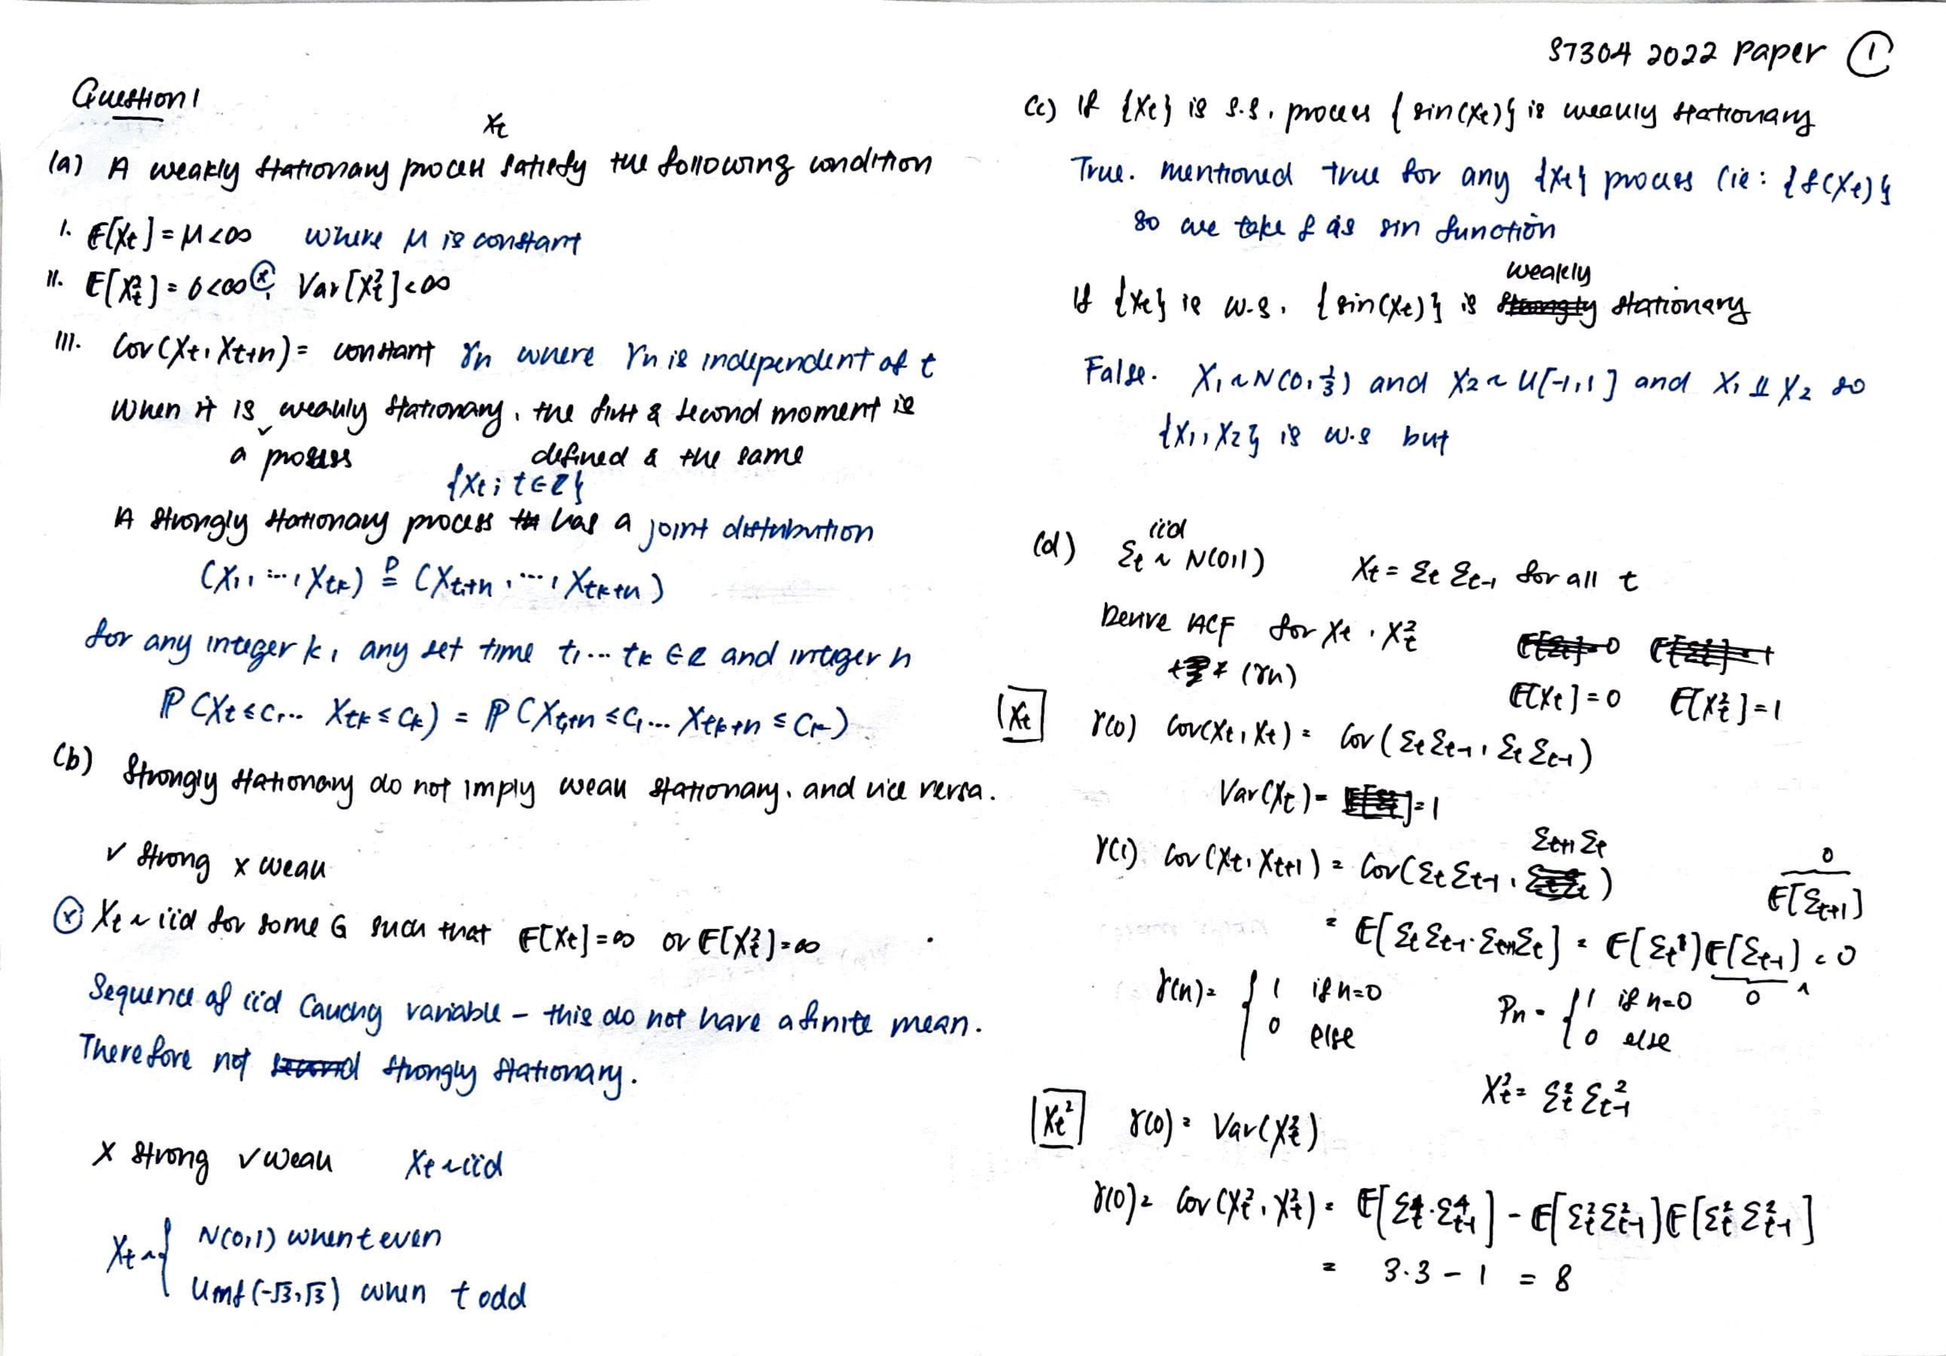 ST304 2022 Paper ①
Question 1
Xt
(a) A weakly stationary process satisfy the following condition
i. E[Xt] = μ < ∞ where μ is constant
ii. E[Xt²] = σ < ∞ ⓧ, Var[Xt²] < ∞
iii. Cov(Xt, Xt+h) = constant γh where γh is independent of t
when it is weakly stationary, the first & second moment is
a process defined & the same
{Xt ; t ∈ Z}
A strongly stationary process has a joint distribution
(X1, ..., Xtk) =ᴰ (Xt+h, ..., Xtk+h)
for any integer k, any set time t1 ... tk ∈ R and integer h
P(Xt ≤ C1 ... Xtk ≤ Ck) = P(Xt1+h ≤ C1 ... Xtk+h ≤ Ck)
(b) Strongly stationary do not imply weak stationary, and vice versa.
✓ strong x weak
ⓧ Xt ~ iid for some G such that E[Xt] = ∞ or E[Xt²] = ∞
Sequence of iid Cauchy variable – this do not have a finite mean.
Therefore not strongly stationary.
x strong ✓ weak Xt ~ iid
Xt ~ { N(0,1) when t even
Unif(-√3, √3) when t odd
(c) If {Xt} is s.s, process {sin(Xt)} is weakly stationary
True. mentioned true for any {Xt} process (ie: {f(Xt)}
so we take f as sin function
weakly
If {Xt} is w.s, {sin(Xt)} is strongly stationary
False. X1 ~ N(0, 1/3) and X2 ~ U[-1,1] and X1 ⫫ X2 so
{X1, X2} is w.s but
(d) iid
Σt ~ N(0,1) Xt = Σt Σt-1 for all t
Derive ACF for Xt, Xt²
(γh)
E[Xt] = 0 E[Xt²] = 1
Xt γ(0) Cov(Xt, Xt) = Cov(Σt Σt-1, Σt Σt-1)
Var(Xt) = 1
Σt+1 Σt
γ(1) Cov(Xt, Xt+1) = Cov(Σt Σt-1, )
0
E[Σt+1]
= E[Σt Σt-1 · Σt+1 Σt] = E[Σt²) E[Σt-1) = 0
0
γ(h) = { 1 if h=0
0 else
Ph = { 1 if h=0
0 else
Xt² = Σt² Σt-1²
Xt² γ(0) = Var(Xt²)
γ(0) = Cov(Xt², Xt²) = E[Σt⁴ · Σt-1⁴] - E[Σt² Σt-1²) E[Σt² Σt-1²]
= 3·3 - 1 = 8